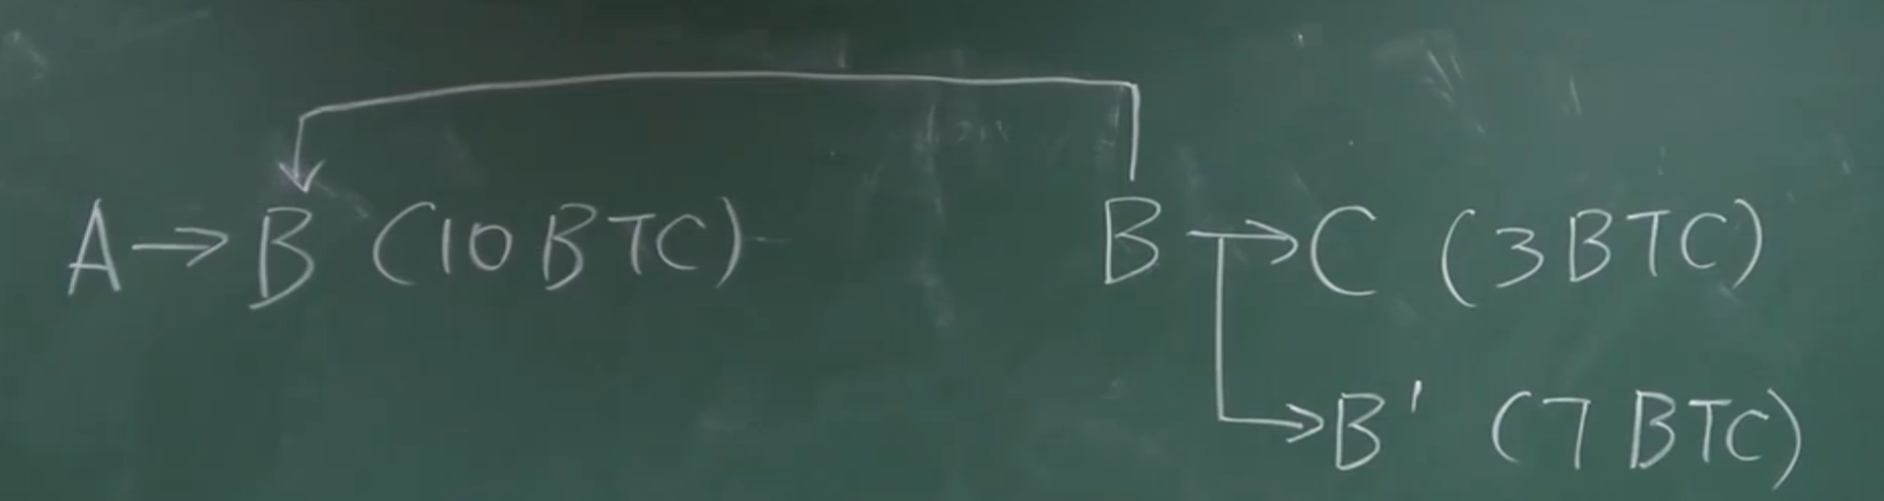 A→B (10 BTC) B→C (3 BTC)
→B' (7 BTC)